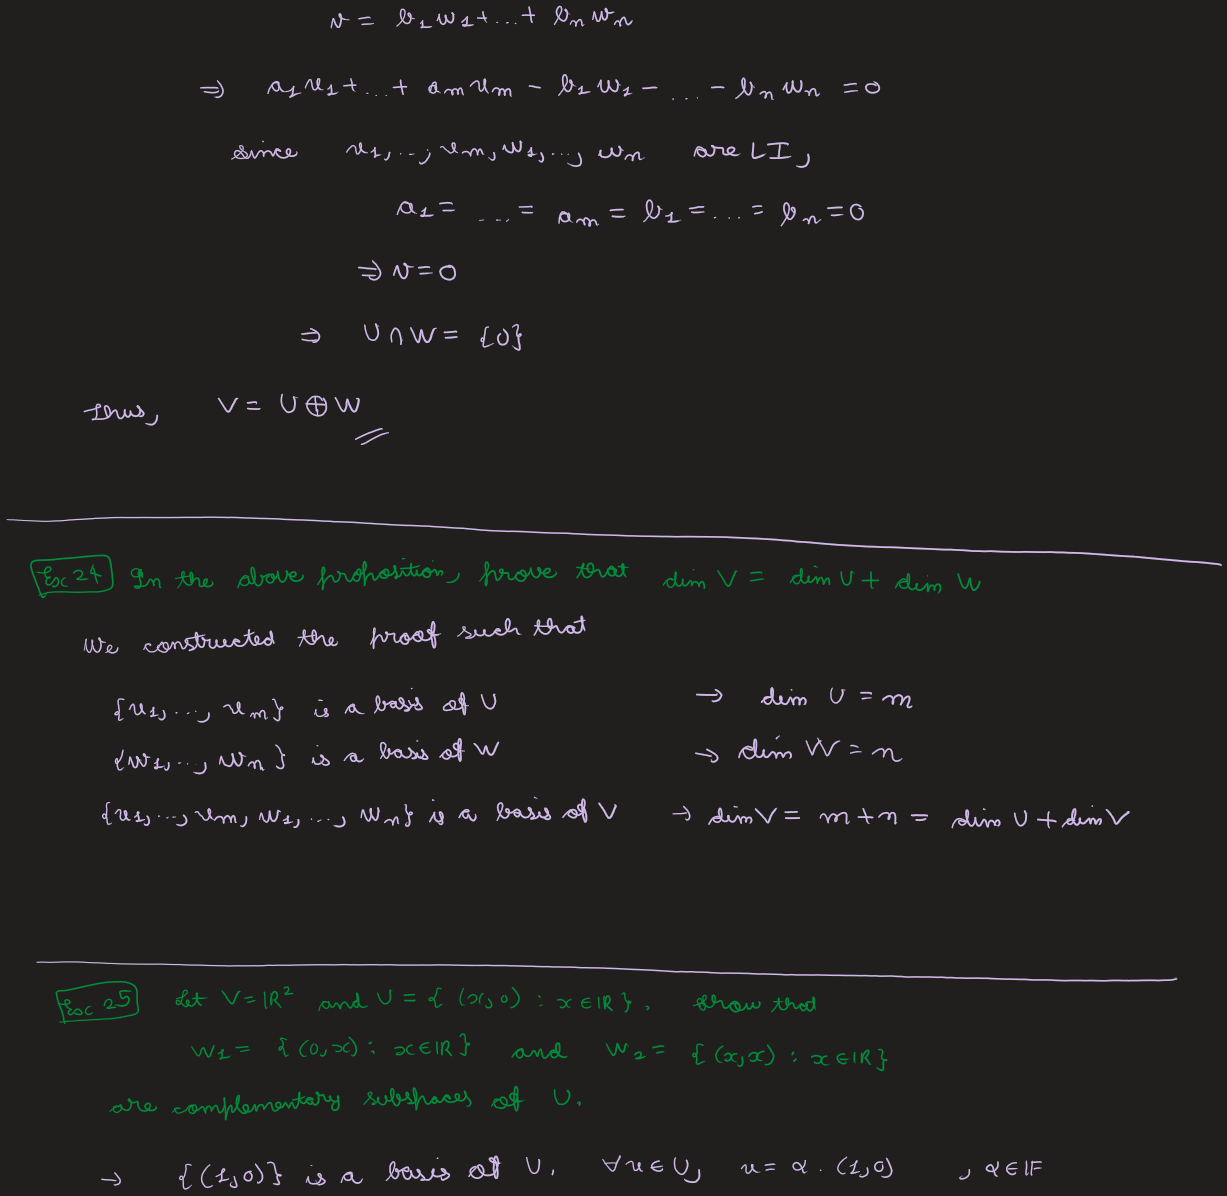 v = b₁w₁ + ... + bₙwₙ
⇒ a₁u₁ + ... + aₘuₘ - b₁w₁ - ... - bₙwₙ = 0
since u₁, ..., uₘ, w₁, ..., wₙ are LI,
a₁ = ... = aₘ = b₁ = ... = bₙ = 0
⇒ v = 0
⇒ U ∩ W = {0}
Thus, V = U ⊕ W
Exc 24 In the above proposition, prove that dim V = dim U + dim W
We constructed the proof such that
{u₁, ..., uₘ} is a basis of U → dim U = m
{w₁, ..., wₙ} is a basis of W → dim W = n
{u₁, ..., uₘ, w₁, ..., wₙ} is a basis of V → dim V = m + n = dim U + dim V
Exc 25 Let V = ℝ² and U = { (x, 0) : x ∈ ℝ }. Show that
W₁ = { (0, x) : x ∈ ℝ } and W₂ = { (x, x) : x ∈ ℝ }
are complementary subspaces of U.
→ {(1, 0)} is a basis of U. ∀ u ∈ U, u = α . (1, 0) , α ∈ 𝔽